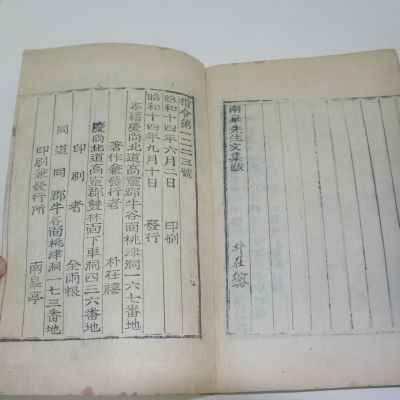 南皐先生文集跋
朴在
指令第一二二三號
昭和十四年六月二日 印刷
昭和十四年九月十日 發行
本籍慶尚北道高靈郡牛谷面桃津洞一六七番地
著作兼發行者 朴在禧
慶尚北道高靈郡雙林面下車洞四三六番地
印刷者 全兩根
同道同郡牛谷面桃津洞一七三番地
印刷兼發行所 南皐亭